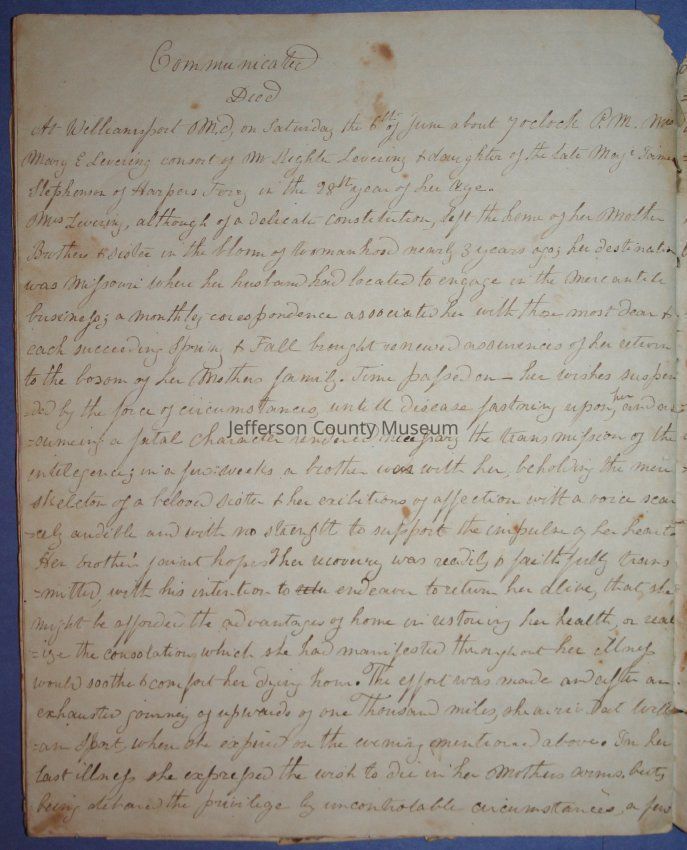 Communicated
Died
At Williamsport Md, on Saturday the 6th of June about 7 oclock P.M. Mrs
Mary E Levering consort of Mr Levering & daughter of the late Majr James
Stephenson of Harpers Ferry in the 28st year of her Age.
Mrs Levering, although of a delicate constitution, left the home of her Mother
Brothers & Sister in the bloom of womanhood nearly 3 years ago; her destination
was Missouri where her husband had located to engage in the Mercantile
business; a monthly corespondence associated her with those most dear &
each succeeding Spring & Fall brought renewed assurences of her return
to the bosom of her Mothers family. Time passed on – her wishes suspen
=ded by the force of circumstances, untill disease fastning upon her and as
=sumeing a fatal character rendered the transmission of the
intelegence; in a few weeks a brother was with her, beholding the mere
skeleton of a beloved sister & her exibitions of affection with a voice scar
=cely audible and with no strenght to support the impulse of her heart.
Her brother's faint hopes of her recovery was readily & faithfully trans
=mitted, with his intention to endeavor to return her alive, that, she
might be afforded the advantages of home in restoring her health, or real
=ize the consolations which she had manifested throughout her illness
would soothe & comfort her dying hour. The effort was made and after an
exhausted journey of upwards of one Thousand miles, she arrived at Willi
=am Sport, when she expired on the evening mentioned above. In her
last illness she expressed the wish to die in her Mothers arms, but,
being debared the privilege by uncontrolable circumstances, a few
Jefferson County Museum